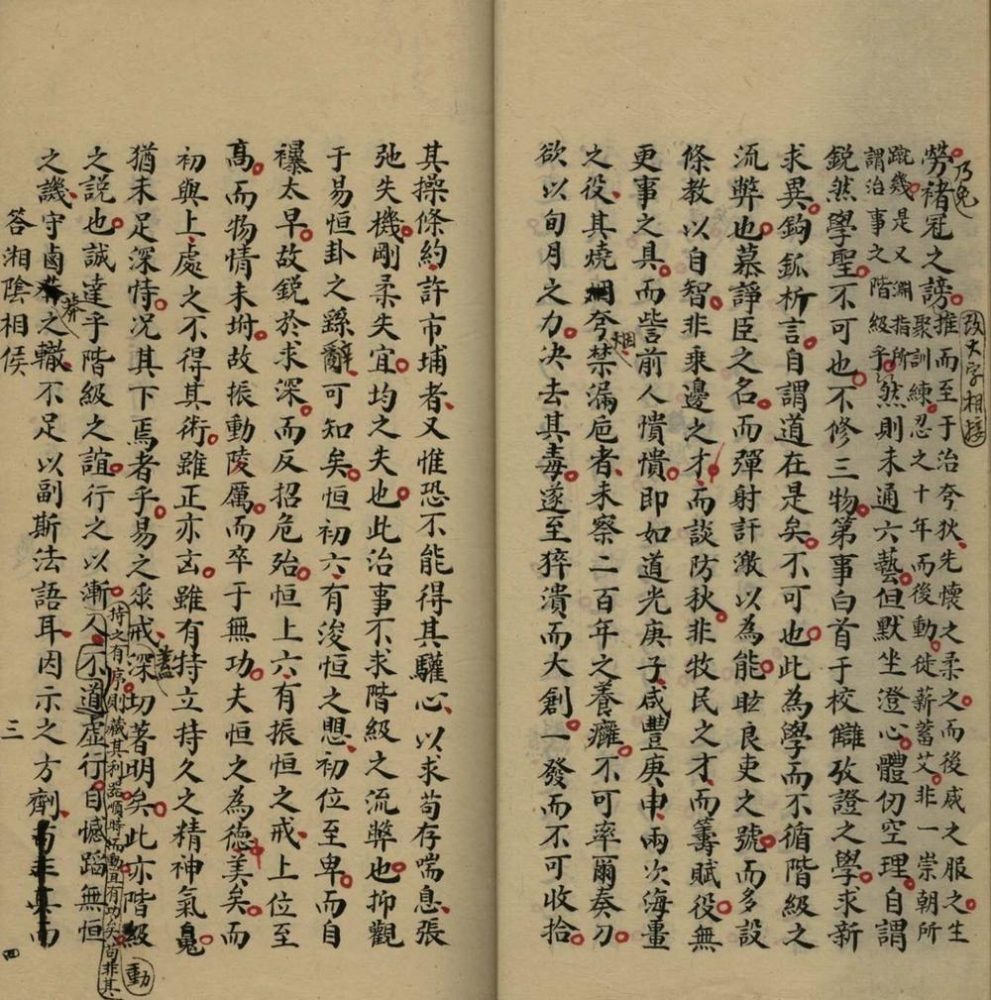 乃免
改大字相接
勞褚冠之謗推而至于治夸狄先懷之柔之而後威之服之生
聚訓練忍之十年而後動徙薪蓄艾非一崇朝所
蹴幾是又淵指所
謂治事之階級乎然則未通六藝但默坐澄心體仞空理自謂
銳然學聖不可也不修三物第事白首于校讎攷證之學求新
求異鉤釽析言自謂道在是矣不可也此為學而不循階級之
流弊也慕諍臣之名而彈射訐激以為能眩良吏之號而多設
條教以自智非乘邊之才而談防秋非牧民之才而籌賦役無
更事之具而訾前人憒憒即如道光庚子咸豐庚申兩次海畺
之役其燒烟夸禁漏卮者未察二百年之養癰不可率爾奏刀
欲以旬月之力決去其毒遂至猝潰而大創一發而不可收拾
其操條約許市埔者又惟恐不能得其驩心以求苟存喘息張
弛失機剛柔失宜均之失也此治事不求階級之流弊也抑觀
于易恒卦之繇辭可知矣恒初六有浚恒之愳初位至卑而自
襮太早故銳於求深而反招危殆恒上六有振恒之戒上位至
高而物情未坿故振動陵厲而卒于無功夫恒之為德美矣而
初與上處之不得其術雖正亦凶雖有持立持久之精神氣鬼
猶未足深恃况其下焉者乎易之𠂹戒深切著明矣此亦階級
蓋
動
之説也誠達乎階級之誼行之以漸入不道虛行自憾蹈無恒
持之有序則藏其利器順時而動宜有功矣苟非其
之譏守鹵莽之轍不足以副斯法語耳因示之方劑
答湘陰相侯
三
四